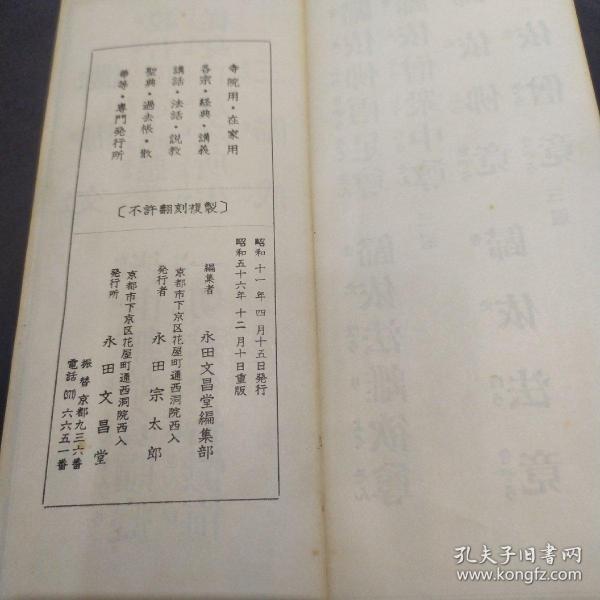 寺院用・在家用
各宗・経典・講義
講話・法話・説教
聖典・過去帳・散
華等・専門発行所
〔不許翻刻複製〕
昭和十一年四月十五日発行
昭和五十六年十二月十日重版
編集者 永田文昌堂編集部
京都市下京区花屋町通西洞院西入
発行者 永田宗太郎
京都市下京区花屋町通西洞院西入
発行所 永田文昌堂
振替京都九三六番
電話(371)六六五一番
孔夫子旧书网
www.kongfz.com